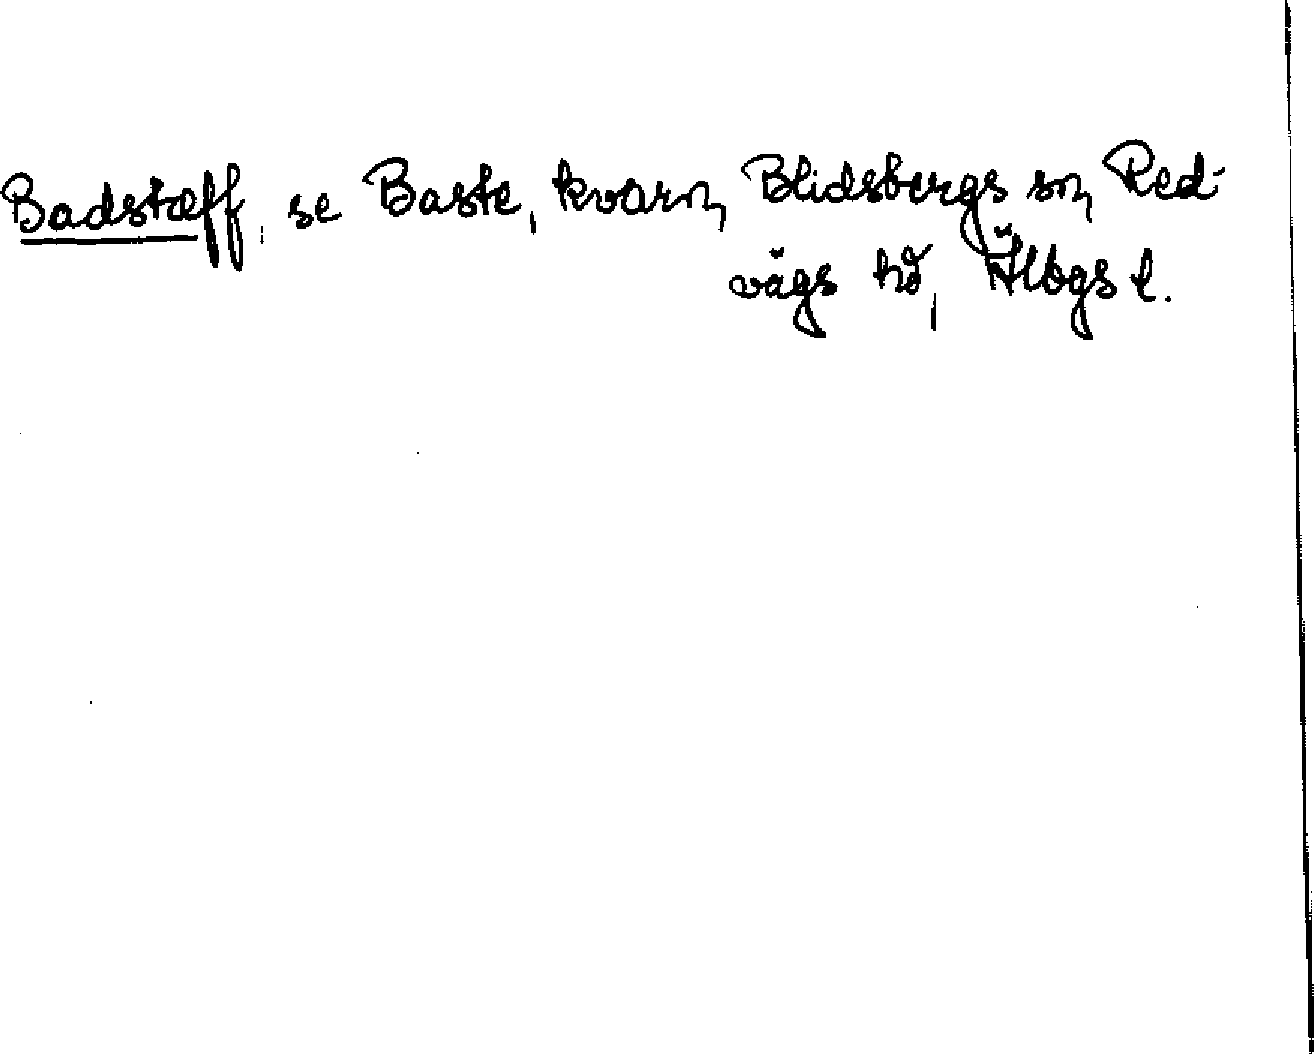 Badstæff, se Baste, kvarn, Blidsbergs sn, Red-
vägs hd, Älvbgs l.